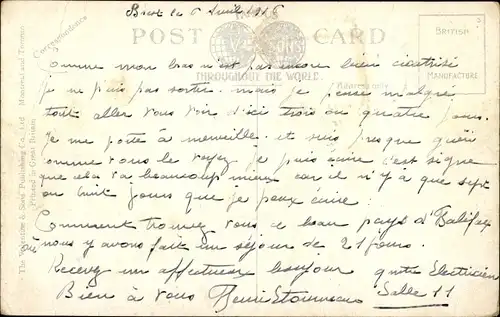 Brest le 6 Avril 1916
POST CARD
THROUGHOUT THE WORLD
Correspondence
Address only
BRITISH
MANUFACTURE
The Valentine & Sons Publishing Co., Ltd. Montreal and Toronto
Printed in Great Britain
Comme mon bras n'est pas encore bien cicatrisé
je ne puis pas sortir. mais je pense malgré
tout aller vous voir d'ici trois ou quatre jours.
Je me porte à merveille et suis presque guéri
comme vous le voyez je puis écrire c'est signe
que cela va beaucoup mieux car il n'y a que sept
ou huit jours que je peux écrire.
Comment trouvez vous ce beau pays d'Halifax
où nous y avons fait un séjour de 21 jours.
Recevez un affectueux bonjour
Electricien
Bien à vous Henri
Salle 11